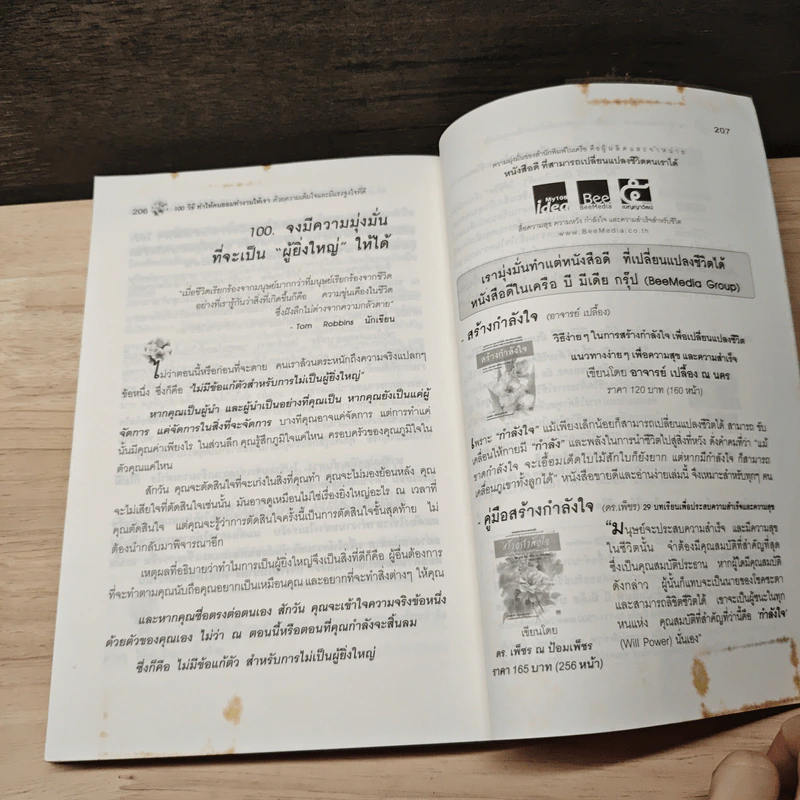 206
100 วิธี ทำให้คนยอมทำงานให้เรา ด้วยความเต็มใจและมีแรงจูงใจที่ดี
100. จงมีความมุ่งมั่น
ที่จะเป็น “ผู้ยิ่งใหญ่” ให้ได้
“เมื่อชีวิตเรียกร้องจากมนุษย์มากกว่าที่มนุษย์เรียกร้องจากชีวิต
อย่างที่เรารู้กันว่าสิ่งที่เกิดขึ้นก็คือ ความขุ่นเคืองในชีวิต
ซึ่งฝังลึกไม่ต่างจากความกลัวตาย”
- Tom Robbins นักเขียน
ไม่ว่าตอนนี้หรือก่อนที่จะตาย คนเราล้วนตระหนักถึงความจริงแปลกๆ
ข้อหนึ่ง ซึ่งก็คือ “ไม่มีข้อแก้ตัวสำหรับการไม่เป็นผู้ยิ่งใหญ่”
หากคุณเป็นผู้นำ และผู้นำเป็นอย่างที่คุณเป็น หากคุณยังเป็นแค่ผู้
จัดการ แค่จัดการในสิ่งที่จะจัดการ บางทีคุณอาจแค่จัดการ แต่การทำแค่
นั้นมีคุณค่าเพียงไร ในส่วนลึก คุณรู้สึกภูมิใจแค่ไหน ครอบครัวของคุณภูมิใจใน
ตัวคุณแค่ไหน
สักวัน คุณจะตัดสินใจที่จะเก่งในสิ่งที่คุณทำ คุณจะไม่มองย้อนหลัง คุณ
จะไม่เสียใจที่ตัดสินใจเช่นนั้น มันอาจดูเหมือนไม่ใช่เรื่องยิ่งใหญ่อะไร ณ เวลาที่
คุณตัดสินใจ แต่คุณจะรู้ว่าการตัดสินใจครั้งนี้เป็นการตัดสินใจขั้นสุดท้าย ไม่
ต้องนำกลับมาพิจารณาอีก
เหตุผลที่อธิบายว่าทำไมการเป็นผู้ยิ่งใหญ่จึงเป็นสิ่งที่ดีก็คือ ผู้อื่นต้องการ
ที่จะทำตามคุณนับถือคุณอยากเป็นเหมือนคุณ และอยากที่จะทำสิ่งต่างๆ ให้คุณ
และหากคุณซื่อตรงต่อตนเอง สักวัน คุณจะเข้าใจความจริงข้อหนึ่ง
ด้วยตัวของคุณเอง ไม่ว่า ณ ตอนนี้หรือตอนที่คุณกำลังจะสิ้นลม
ซึ่งก็คือ ไม่มีข้อแก้ตัว สำหรับการไม่เป็นผู้ยิ่งใหญ่
207
ความมุ่งมั่นของสำนักพิมพ์ในเครือ คือผู้ผลิตและจำหน่าย
หนังสือดี ที่สามารถเปลี่ยนแปลงชีวิตคนเราได้
My 108 idea
Bee BeeMedia
เบญญาวัฒน์
สื่อความสุข ความหวัง กำลังใจ และความสำเร็จสำหรับชีวิต
www.BeeMedia.co.th
เรามุ่งมั่นทำแต่หนังสือดี ที่เปลี่ยนแปลงชีวิตได้
หนังสือดีในเครือ บี มีเดีย กรุ๊ป (BeeMedia Group)
- สร้างกำลังใจ (อาจารย์ เปลื้อง)
สร้างกำลังใจ
วิธีง่ายๆ ในการสร้างกำลังใจ เพื่อเปลี่ยนแปลงชีวิต
แนวทางง่ายๆ เพื่อความสุข และความสำเร็จ
เขียนโดย อาจารย์ เปลื้อง ณ นคร
ราคา 120 บาท (160 หน้า)
เพราะ “กำลังใจ” แม้เพียงเล็กน้อยก็สามารถเปลี่ยนแปลงชีวิตได้ สามารถ ขับ
เคลื่อนให้กายมี “กำลัง” และพลังในการนำชีวิตไปสู่สิ่งที่หวัง ดังคำคมที่ว่า “แม้
ขาดกำลังใจ จะเอื้อมเด็ดใบไม้สักใบก็ยังยาก แต่หากมีกำลังใจ ก็สามารถ
เคลื่อนภูเขาทั้งลูกได้” หนังสือขายดีและอ่านง่ายเล่มนี้ จึงเหมาะสำหรับทุกๆ คน
- คู่มือสร้างกำลังใจ (ดร.เพ็ชร) 29 บทเรียนเพื่อประสบความสำเร็จและความสุข
“มนุษย์จะประสบความสำเร็จ และมีความสุข
ในชีวิตนั้น จำต้องมีคุณสมบัติที่สำคัญที่สุด
ซึ่งเป็นคุณสมบัติประธาน หากผู้ใดมีคุณสมบัติ
ดังกล่าว ผู้นั้นก็แทบจะเป็นนายของโชคชะตา
และสามารถลิขิตชีวิตได้ เขาจะเป็นผู้ชนะในทุก
หนแห่ง คุณสมบัติที่สำคัญที่ว่านี้คือ ‘กำลังใจ’
(Will Power) นั่นเอง”
เขียนโดย
ดร. เพ็ชร ณ ป้อมเพ็ชร
ราคา 165 บาท (256 หน้า)